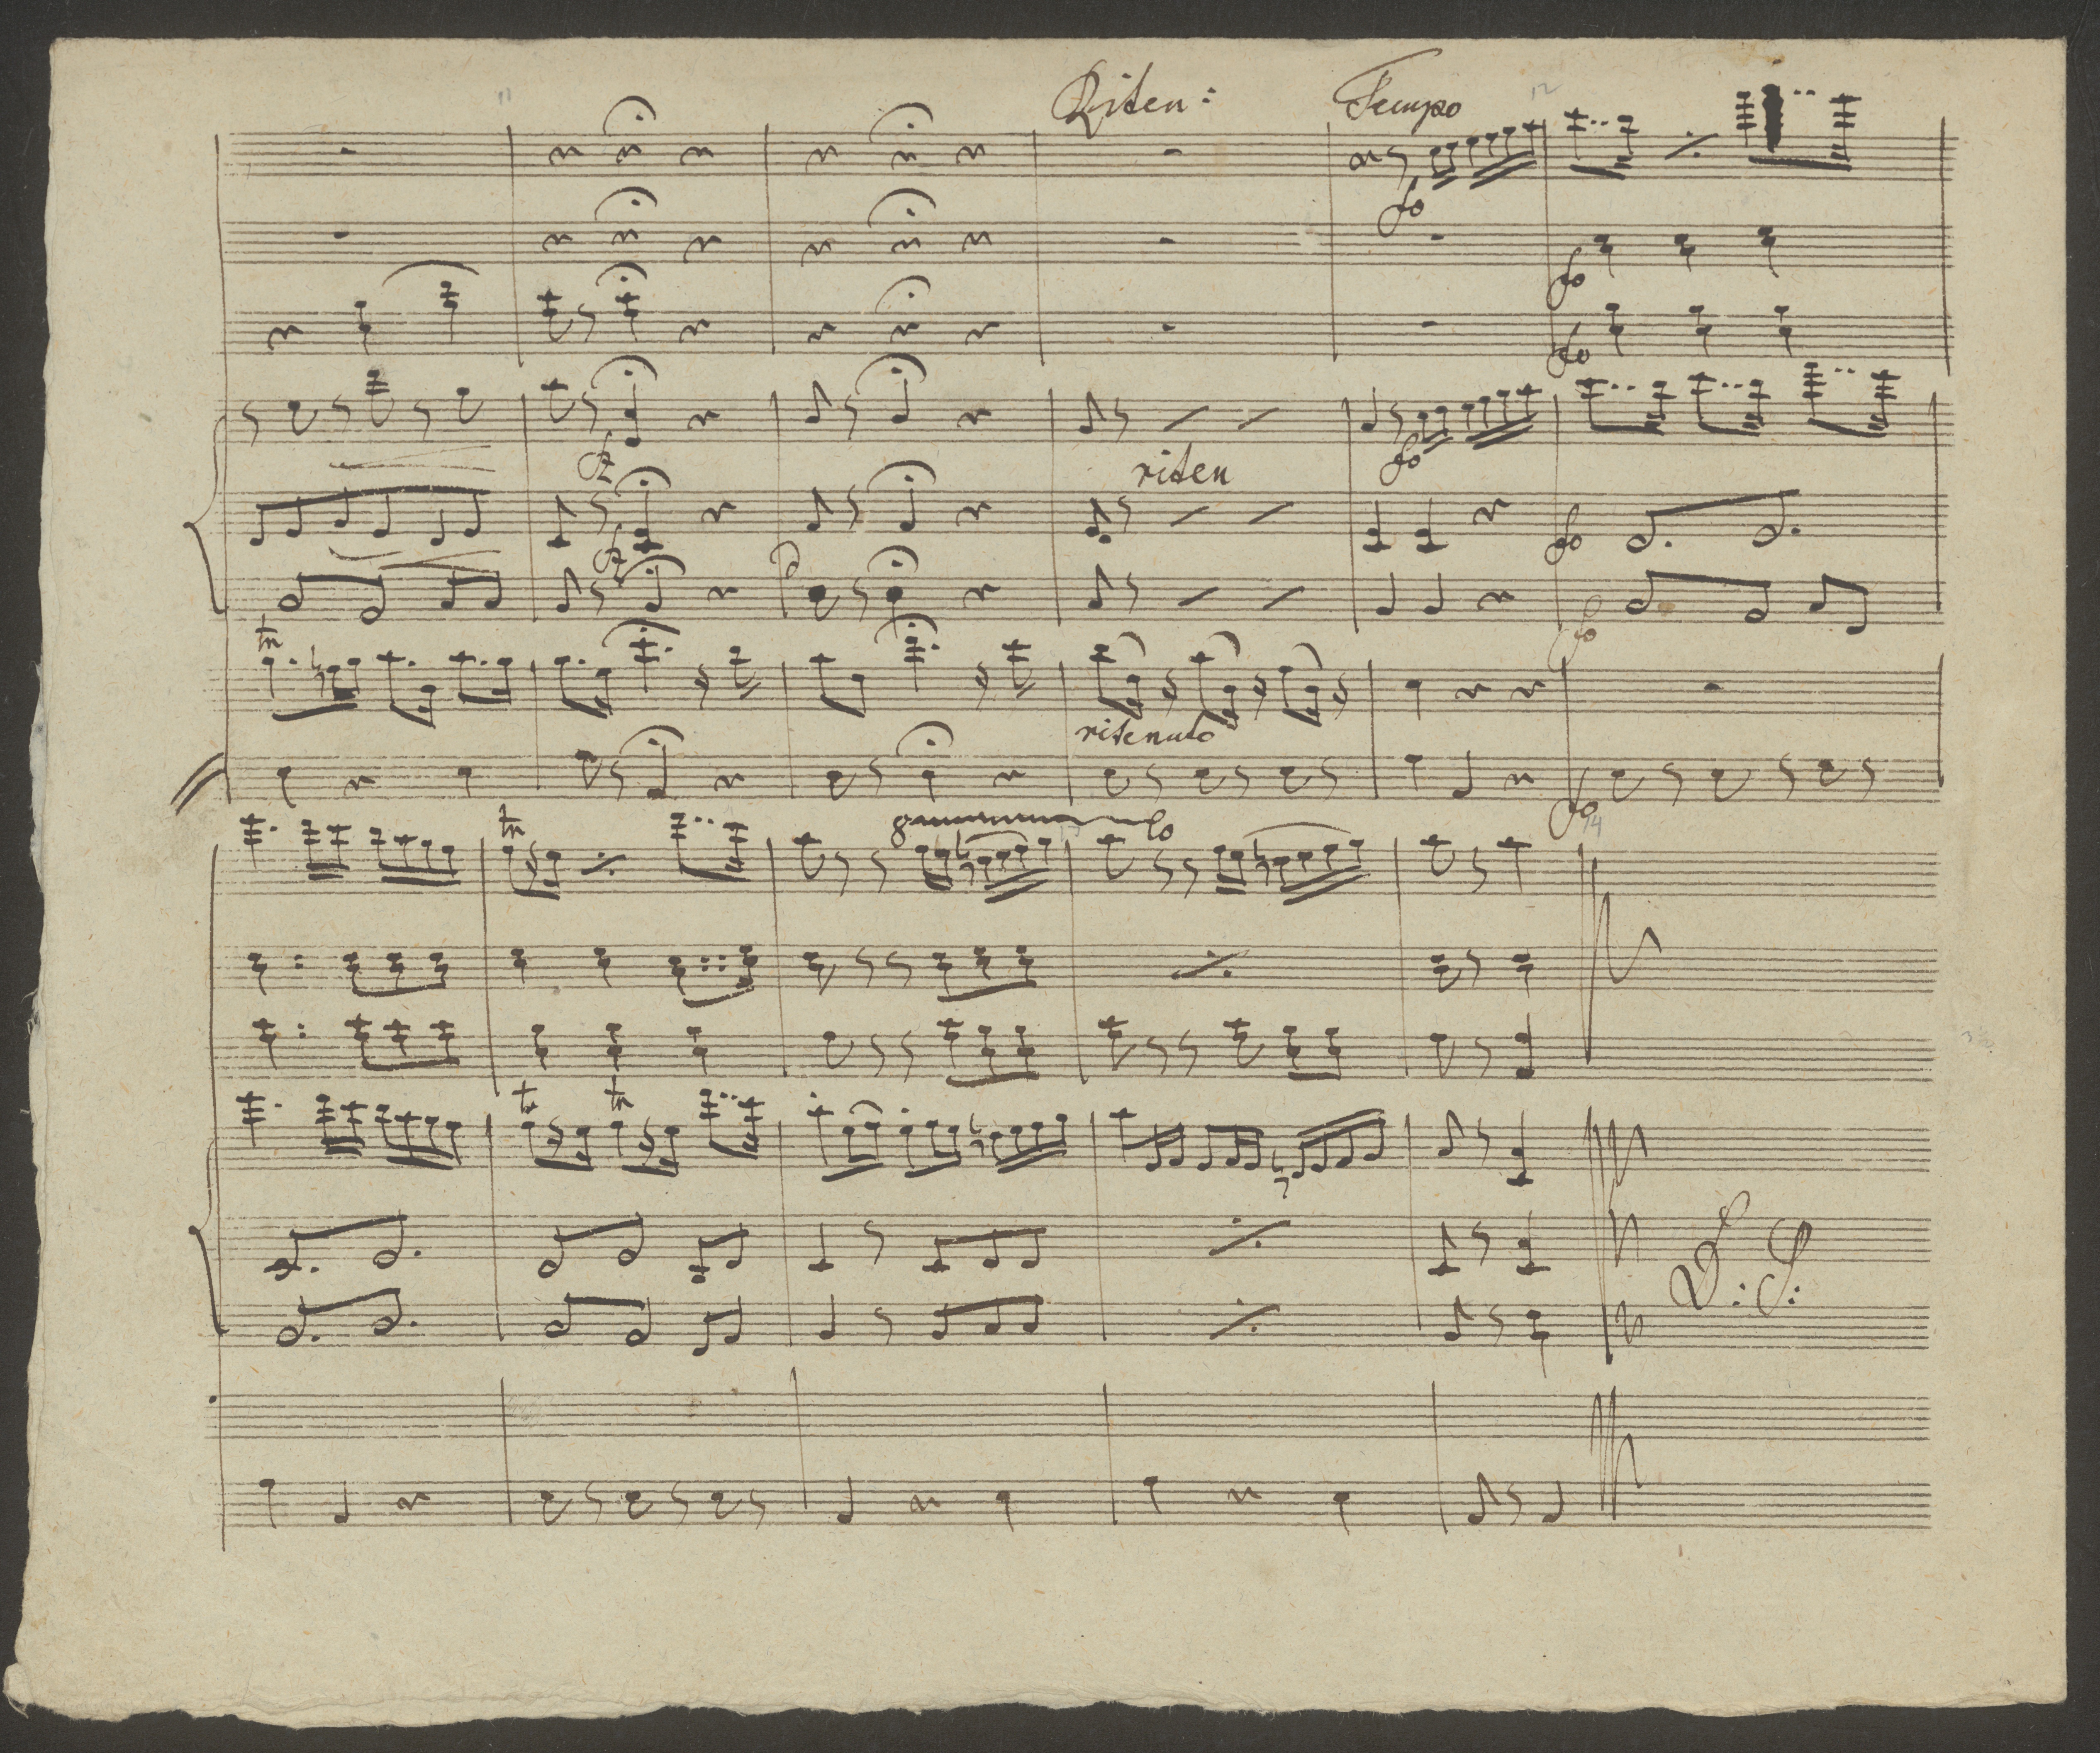 Riten: Tempo
fo
fo
fo
fz
fo
riten
fz
fo
fo
tn
ritenuto
fo
tn
8 lo
tr tn
D: S: